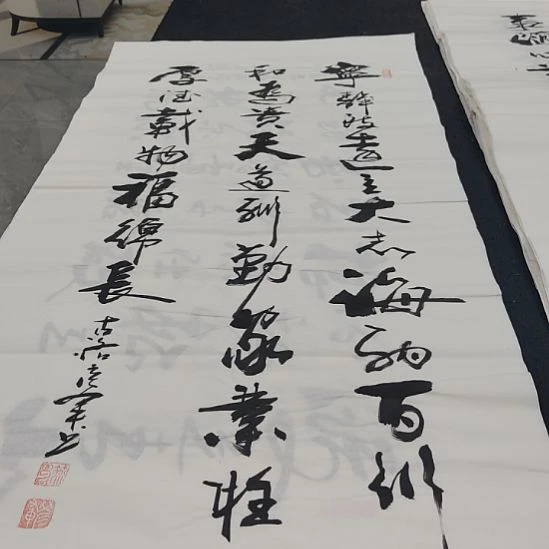 寧静致遠立大志海納百川
和為貴天道酬勤家業旺
厚德載物福綿長